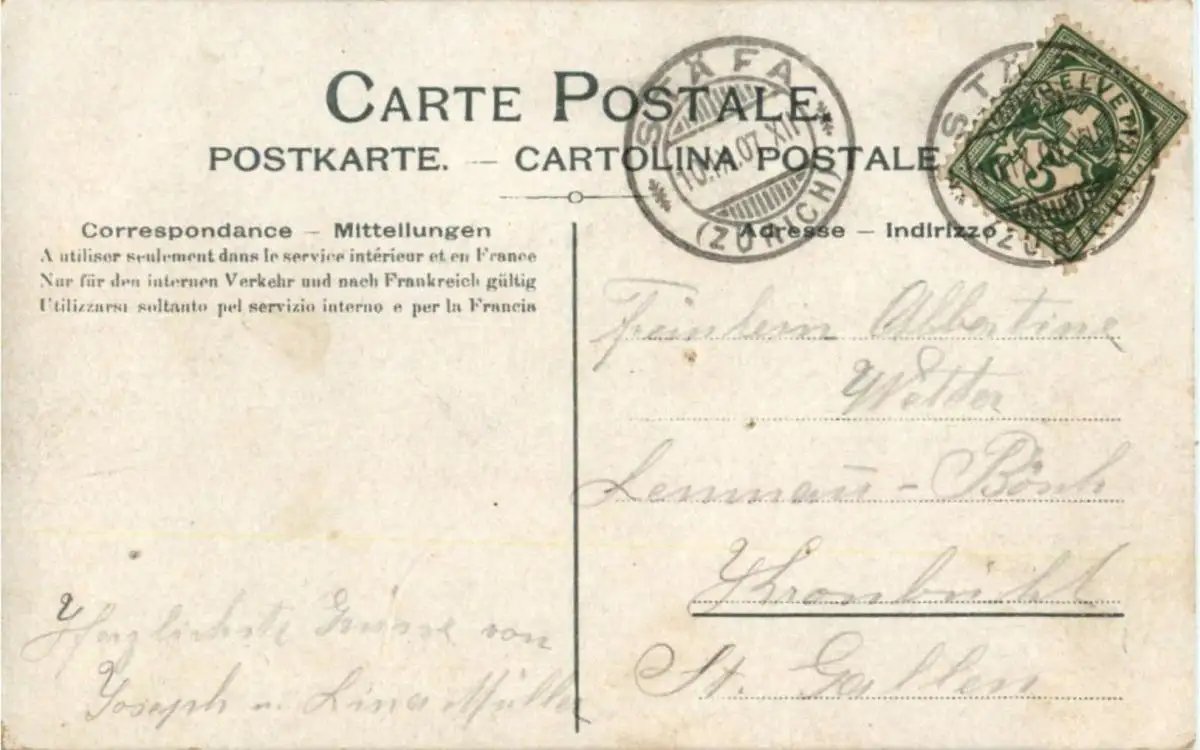 CARTE POSTALE.
POSTKARTE. — CARTOLINA POSTALE
STÄFA
10.VII.07.XII
(ZÜRICH)
HELVETIA
5
Correspondance — Mitteilungen
A utiliser seulement dans le service intérieur et en France
Nur für den internen Verkehr und nach Frankreich gültig
Utilizzarsi soltanto pel servizio interno e per la Francia
Adresse — Indirizzo
Fräulein Albertine
Wetter
- Bösch
Kronbühl
St. Gallen
Herzlichste Grüsse von
Joseph u. Lina Müller